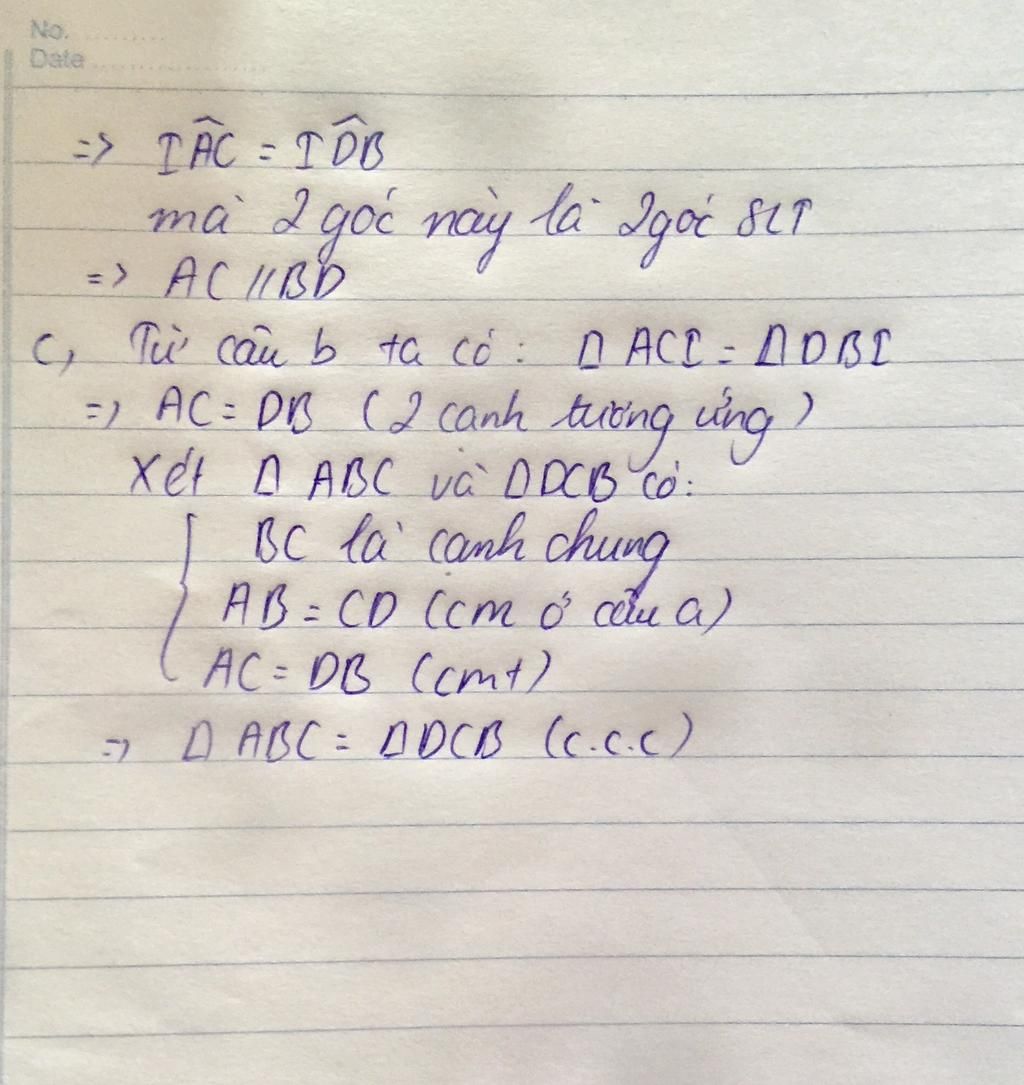 No. ..........
Date ....................
=> IÂC = ID̂B
mà 2 góc này là 2 góc SLT
=> AC // BD
c, Từ câu b ta có: Δ ACI = Δ DBI
=> AC = DB (2 cạnh tương ứng)
Xét Δ ABC và Δ DCB có:
BC là cạnh chung
AB = CD (cm ở câu a)
AC = DB (cmt)
=> Δ ABC = Δ DCB (c.c.c)